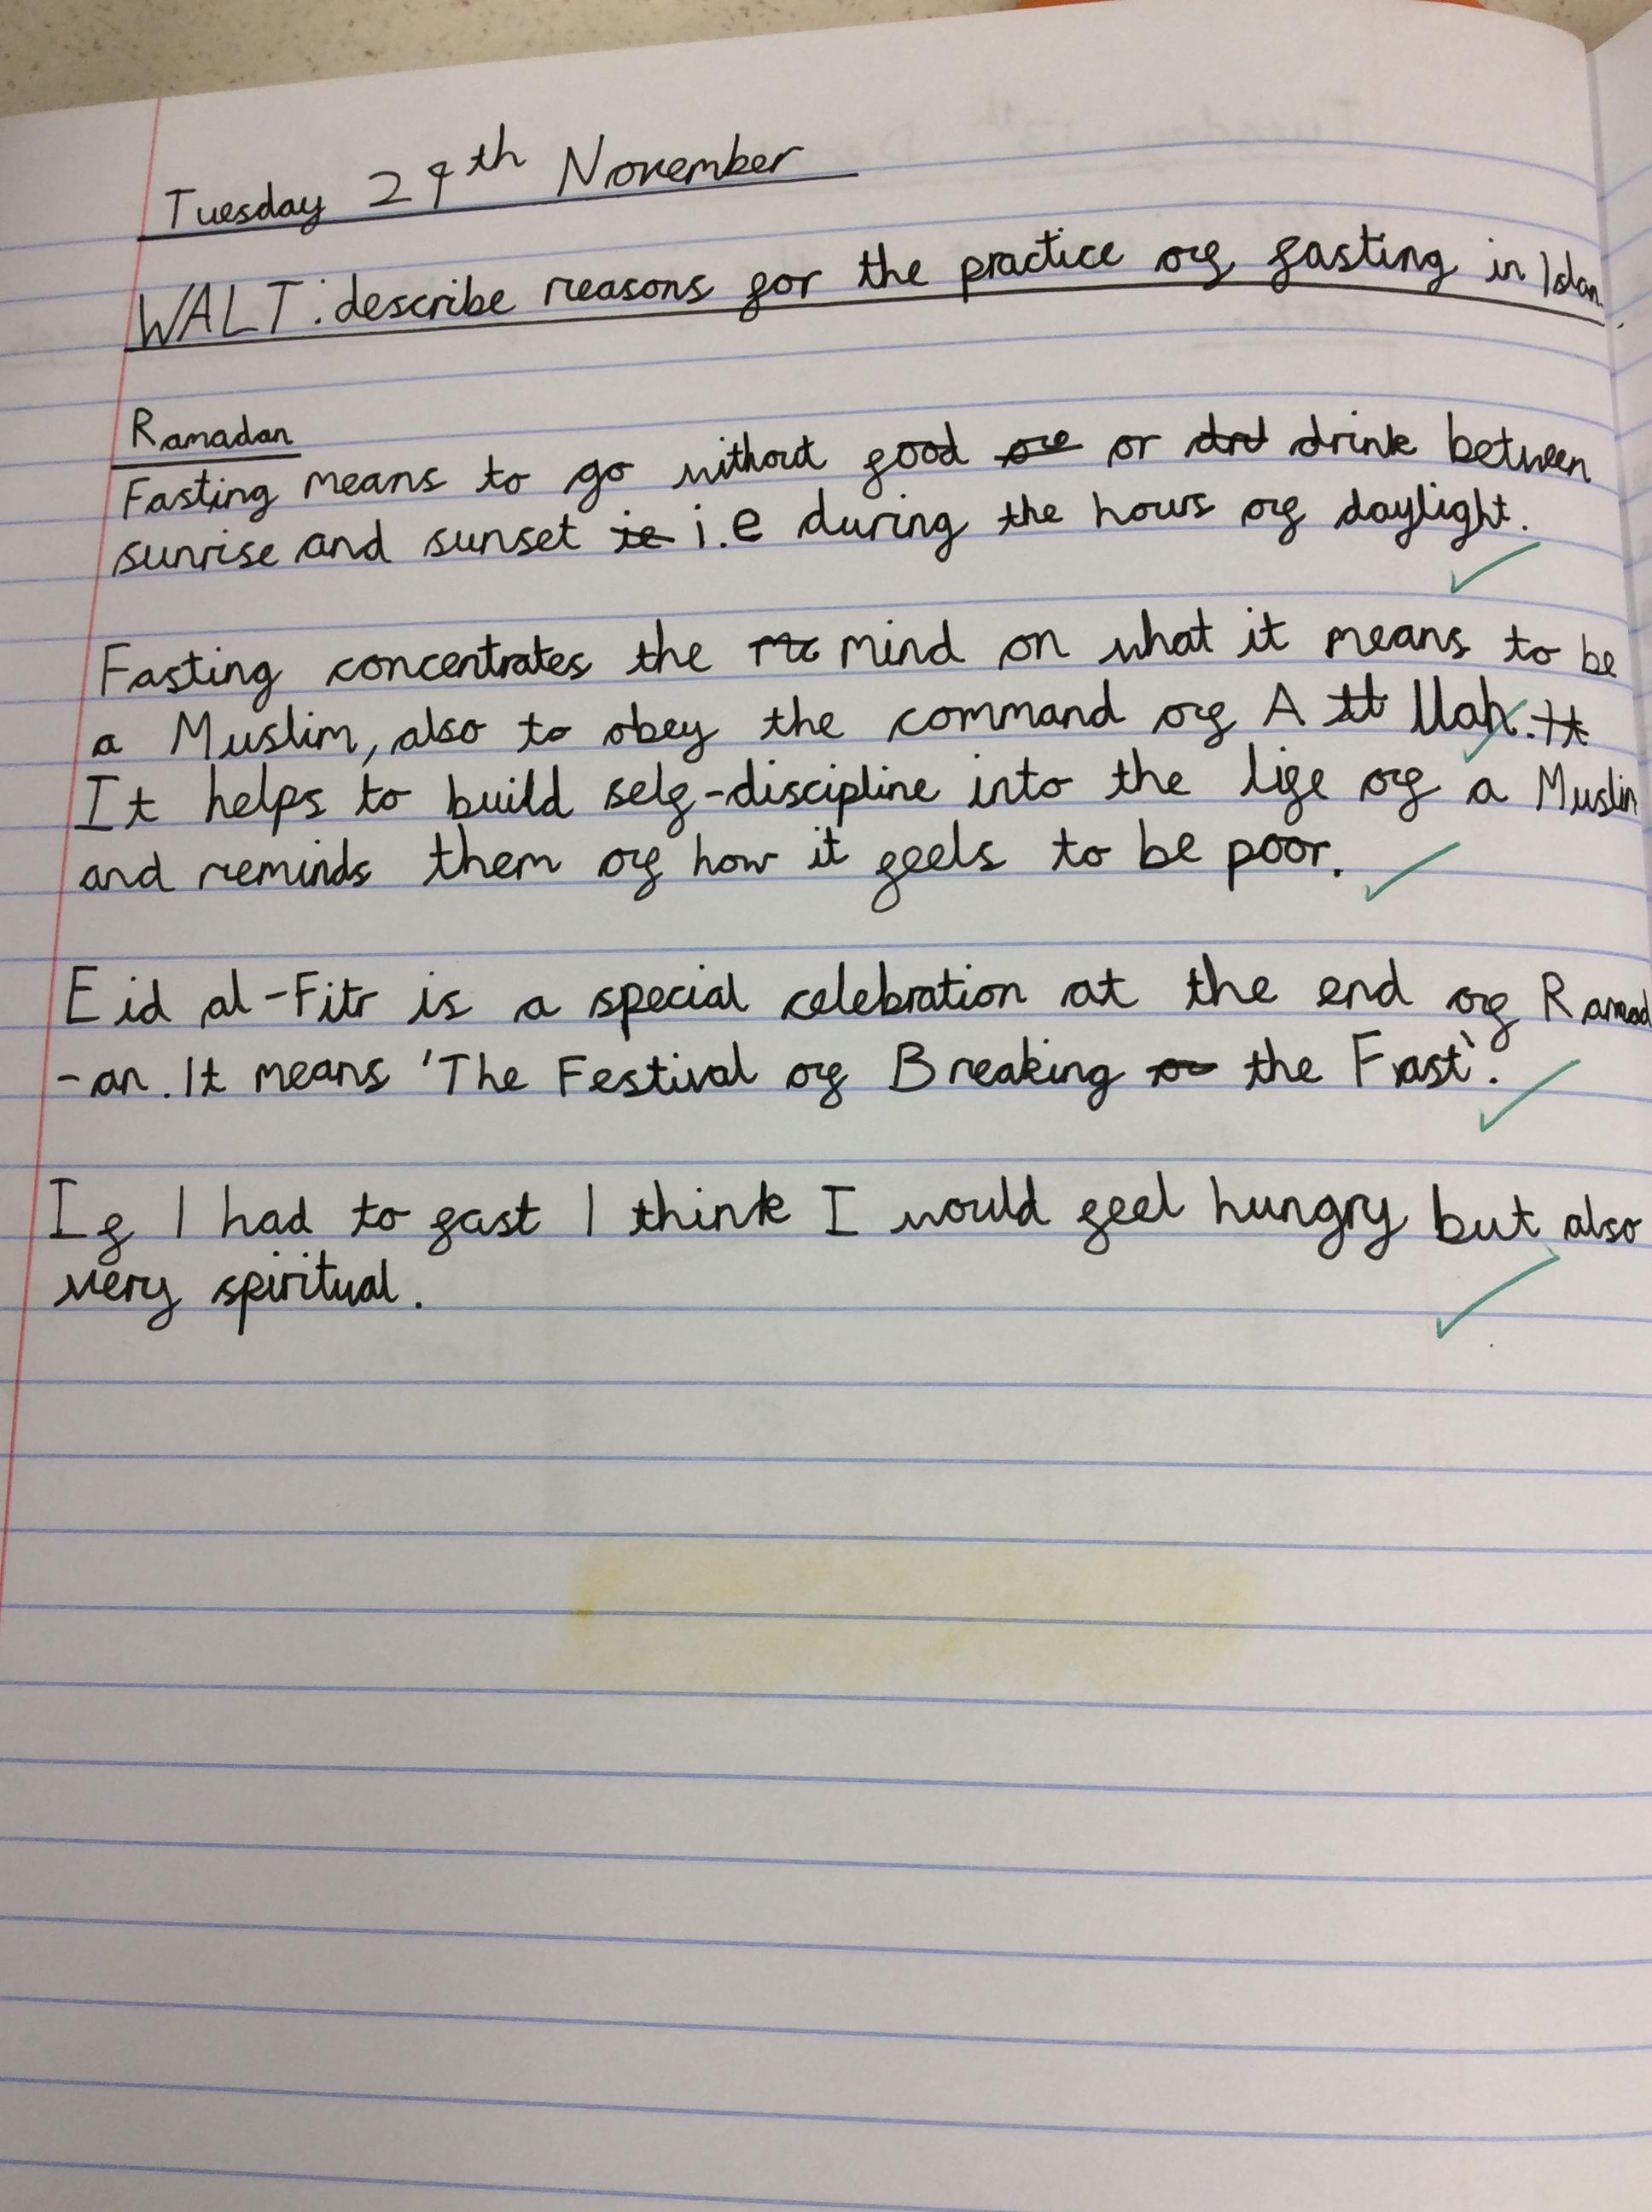 Tuesday 29th November
WALT: describe reasons for the practice of fasting in Islam.
Ramadan
Fasting means to go without food or drink between
sunrise and sunset i.e during the hours of daylight.
Fasting concentrates the mind on what it means to be
a Muslim, also to obey the command of Allah.
It helps to build self-discipline into the life of a Muslim
and reminds them of how it feels to be poor.
Eid al-Fitr is a special celebration at the end of Ramad
-an. It means 'The Festival of Breaking the Fast'.
If I had to fast I think I would feel hungry but also
very spiritual.